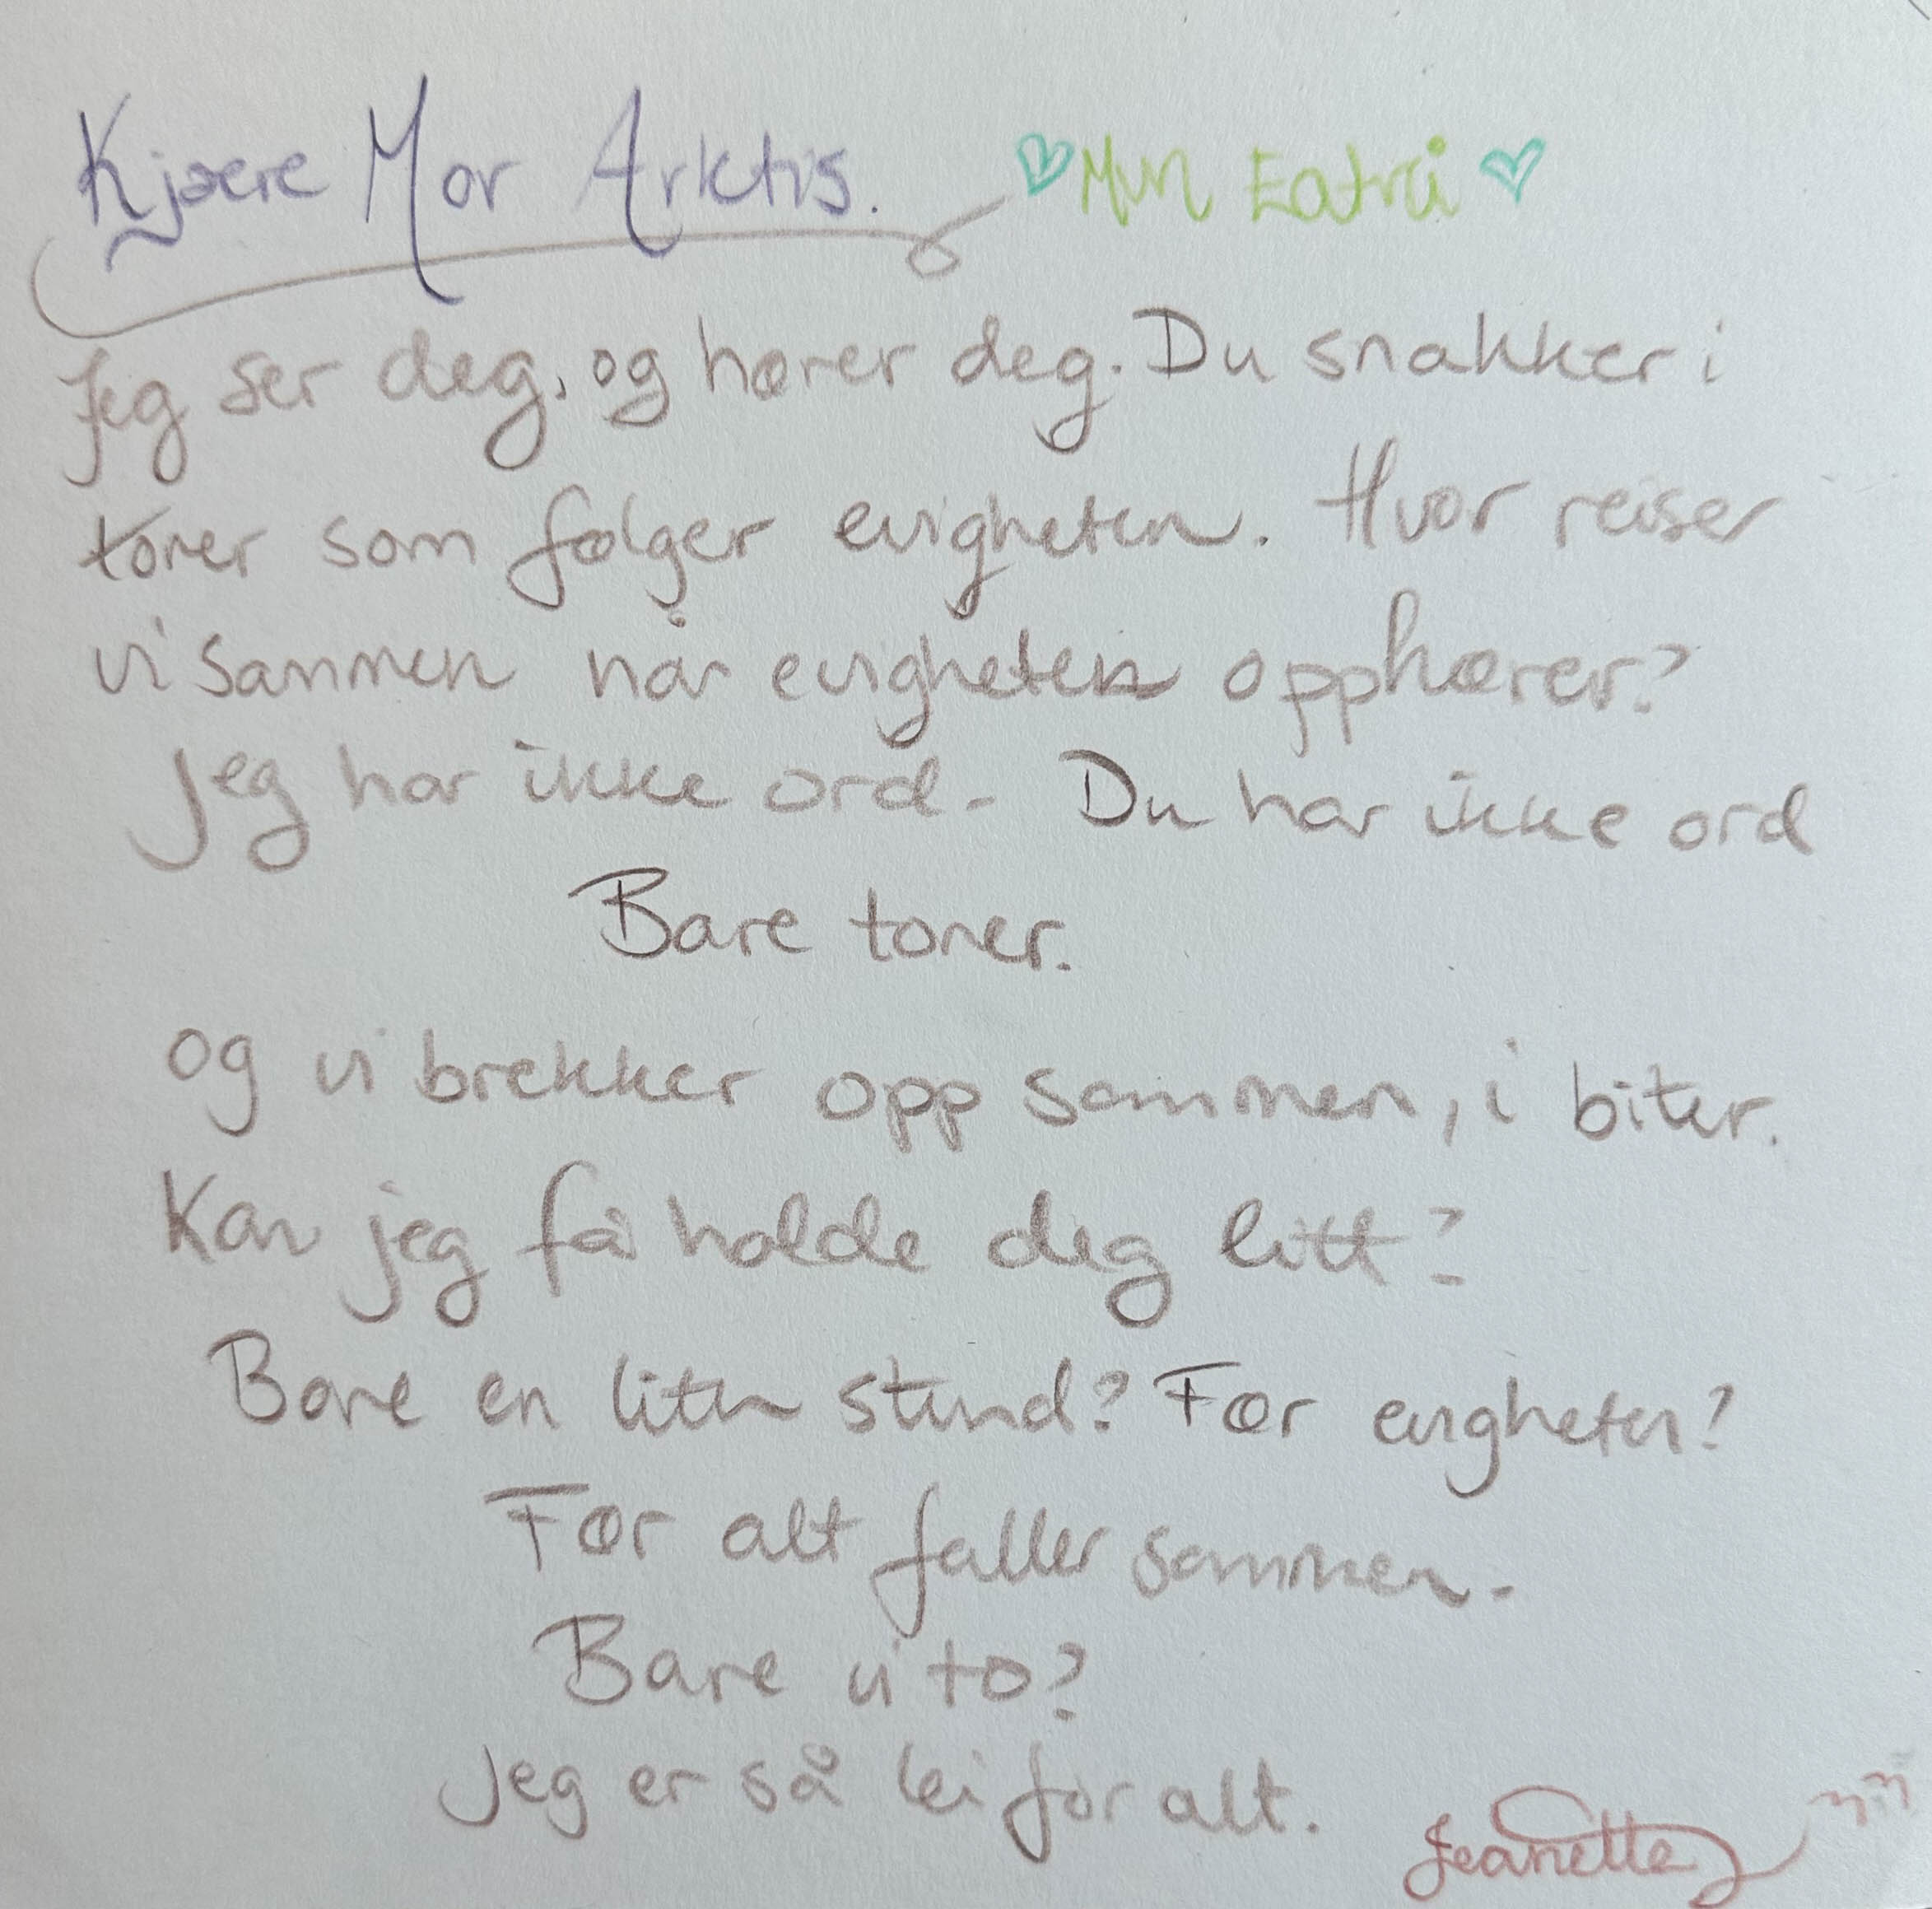 Kjære Mor Arktis. ♡ Min Eatni ♡
Jeg ser deg, og hører deg. Du snakker i
toner som følger evigheten. Hvor reiser
vi sammen når evigheten opphører?
Jeg har ikke ord. Du har ikke ord
Bare toner.
og vi brekker opp sammen, i biter.
Kan jeg få holde deg litt?
Bare en liten stund? Før evigheten?
Før alt faller sammen.
Bare vi to?
Jeg er så lei for alt.
Jeanette